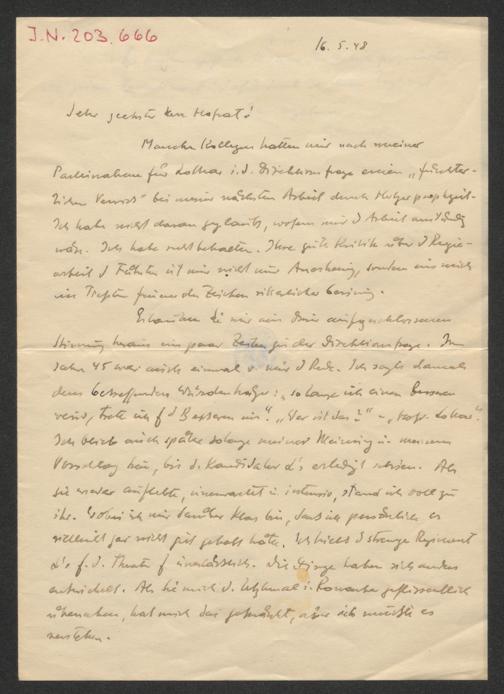 J.N. 203.666
16. 5. 48
Sehr geehrter Herr Hofrat!
Manche Kollegen hatten mir nach meiner
Parteinahme für Lothar i. d. Direktionsfrage einen „fürchter-
lichen Verriss" bei meiner nächsten Arbeit durch Holzer prophezeit.
Ich habe nicht daran geglaubt, wofern mir d Arbeit anständig
wäre. Ich habe recht behalten. Ihre gute Kritik über d Regie-
arbeit d Fährten ist mir nicht nur sondern mir auch
ein Treffen für Zeichen ritterlicher Gesinnung.
Erlauben Sie mir aus dem aufgeschlossenen
Stimmung heraus ein paar Zeilen zu der Direktionsfrage. Im
Jahre 45 war auch einmal v mir d Rede. Ich sagte damals
dem betreffenden Würdenträger: „solange ich einen Besseren
weiss, trete ich f d Besseren ein". „Wer ist das?" – „Prof. Lothar".
Ich blieb auch später solange meiner Meinung u. meinem
Vorschlag treu, bis d. Kandidatur L's erledigt schien. Als
sie wieder auflebte, unerwartet u. intensiv, stand ich voll zu
ihr. Wobei ich mir darüber klar bin, dass ich persönlich es
vielleicht gar nicht gut gehabt hätte. Ich hielt d strenge Regiment
L's f. d. Theater f unerlässlich. Die Dinge haben sich anders
entwickelt. Als Sie mich d. letztmal i. geflissentlich
übersahen, hat mich das gekränkt, aber ich musste es
verstehen.